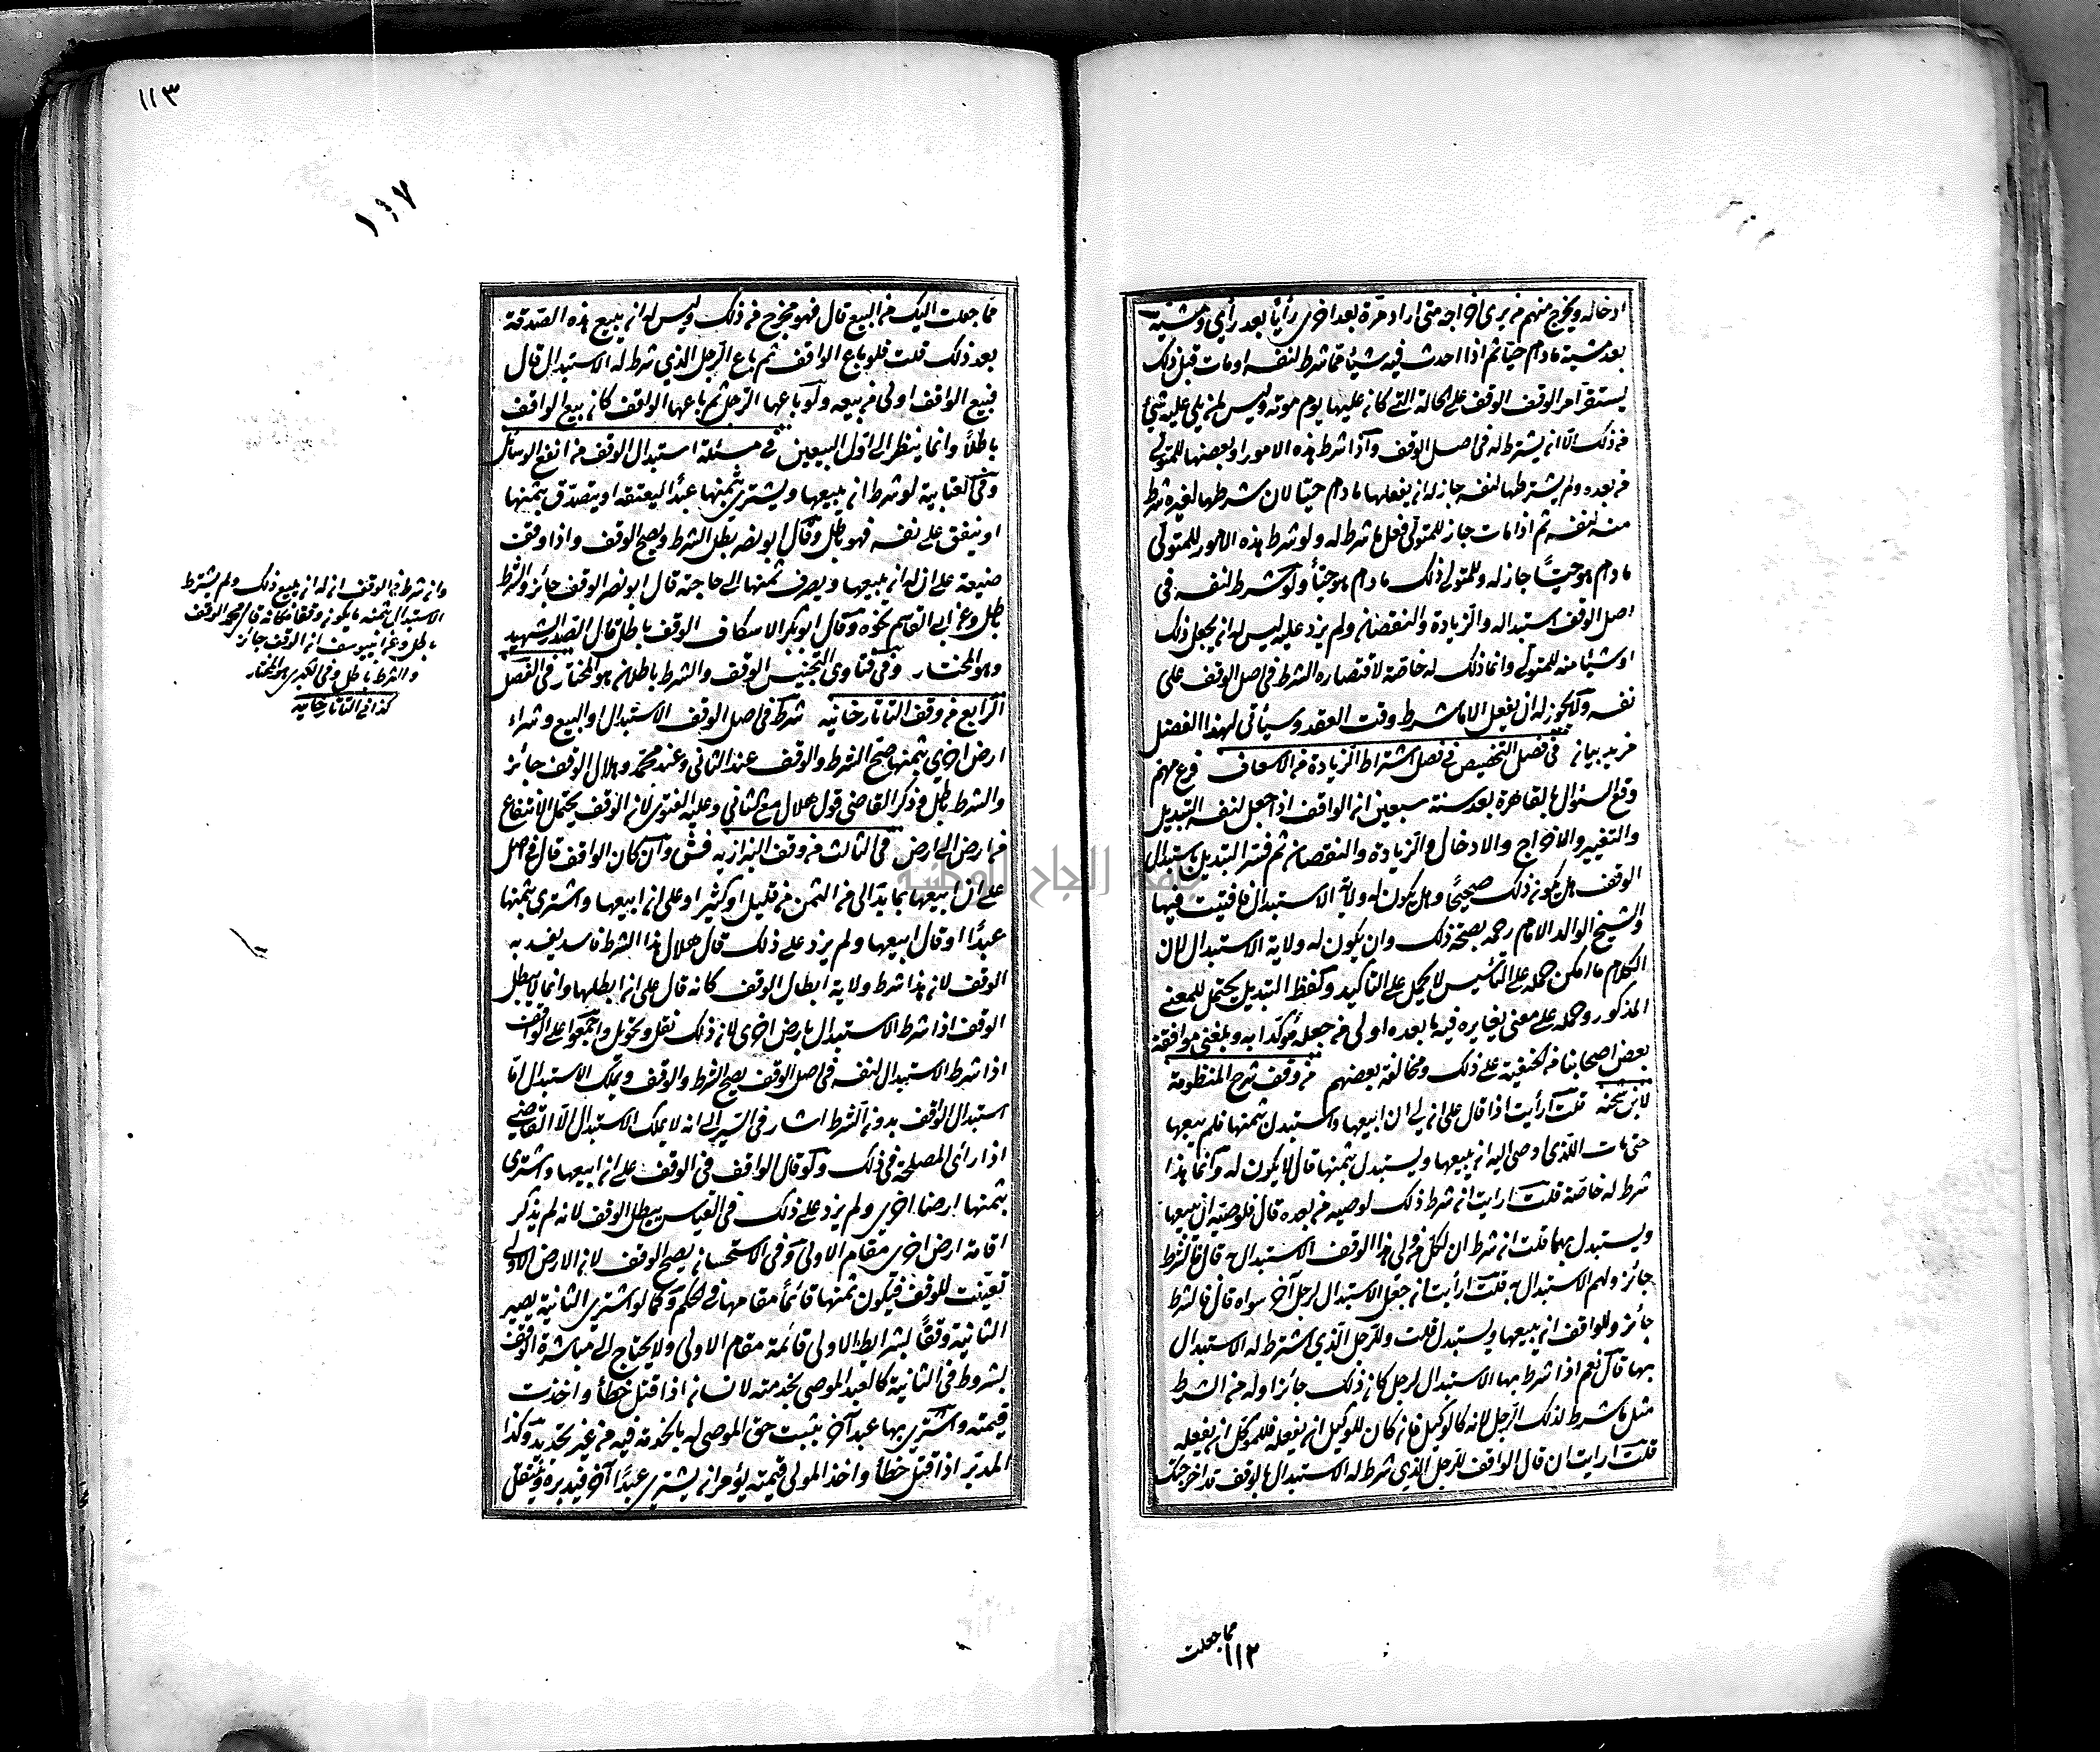 ادخاله ويخرج منهم من يرى اخراجه متى اراد مرة بعد اخرى رأيا بعد رأي ومشية
بعد مشية مادام حيا ثم اذا احدث فيه شيئا مما شرط لنفسه او مات قبل ذلك
يستقر امر الوقف على الحالة التي كان عليها يوم موته وليس لمن يلي عليه شيئ
من ذلك الا ان يشترط له في اصل الوقف واذا شرط هذه الامور او بعضها للمتولي
من بعده ولم يشترطها لنفسه جاز له ان يفعلها مادام حيا لان شرطها لغيره شرط
منه لنفسه ثم اذا مات جاز للمتولي فعل ما شرط له ولو شرط هذه الامور للمتولي
مادام هو حيًا جاز له وللمتولي ذلك مادام هو حيا ولو شرط لنفسه في
اصل الوقف استبداله والزيادة والنقصان ولم يزد عليه ليس له ان يجعل ذلك
او شيئا منه للمتولي وانما ذلك له خاصة لاقتصاره الشرط في اصل الوقف على
نفسه ولا يجوز له ان يفعل الا ما شرط وقت العقد وسيأتي لهذا الفصل
مزيد بيان في فصل التخصيص في فصل اشتراط الزيادة من الاسعاف فرع مهم
وقع السؤال بالقاهرة بعد سنة سبعين ان الواقف اذا جعل لنفسه التبديل
والتغيير والاخراج والادخال والزيادة والنقصان ثم فسر التبديل باستبدال
الوقف هل يكون ذلك صحيحًا وهل يكون له ولاية الاستبدال فافتيت فيها
والشيخ الوالد الامام رحمه بصحة ذلك وان يكون له ولاية الاستبدال لان
الكلام ما امكن حمله على التأسيس لا يحمل على التأكيد ولفظ التبديل يحتمل للمعنى
المذكور وحمله على معنى يغايره فيه ما بعده اولى من جعله مؤكدا به وبلغني موافقة
بعض اصحابنا من الحنفية على ذلك ومخالفة بعضهم من وقف شرح المنظومة
لابن شحنه قلت ارأيت اذا قال على ان لي ان ابيعها واستبدل بثمنها فلم يبعها
حتى مات اللذي اوصى اليه ان يبيعها ويستبدل بثمنها قال لا يكون له وانما هذا
شرط له خاصة قلت ارايت ان شرط ذلك لوصيه من بعده قال فلوصيه ان يبيعها
ويستبدل بها قلت ان شرط ان لكل من ولي هذا الوقف الاستبدال قال فالشرط
جائز ولهم الاستبدال قلت ارأيت ان جعل الاستبدال لرجل آخر سواه قال فالشرط
جائز وللواقف ان يبيعها ويستبدل قلت وللرجل الذي اشترط له الاستبدال
بها قال نعم اذا شرط بها الاستبدال لرجل كان ذلك جائزا وله من الشرط
مثل ما شرط لذلك الرجل لانه كالوكيل فان كان للوكيل ان يفعله فللموكل ان يفعله
قلت ارايت ان قال الواقف للرجل الذي شرط له الاستبدال بالوقف قد اخرجتك
مما جعلت
١١٢
١١٣
١٠٧
مما جعلت اليك من البيع قال فهو مخرج من ذلك وليس له ان يبيع هذه الصدقة
بعد ذلك قلت فلو باع الواقف ثم باع الرجل الذي شرط له الاستبدال قال
فبيع الواقف اولى من بيعه ولو باعها الرجل ثم باعها الواقف كان بيع الواقف
باطلًا وانما ينظر الى اول البيعين في مسئلة استبدال الوقف من انفع الوسائل
وفي العتابية لو شرط ان يبيعها ويشتري بثمنها عبدًا ليعتقه او يتصدق بثمنها
او ينفق على نفسه فهو باطل وقال ابو نصر يبطل الشرط ويصح الوقف واذا وقف
ضيعة على ان له ان يبيعها ويصرف ثمنها الى حاجته قال ابو نصر الوقف جائز والشرط
باطل وعن ابي القاسم نحوه وقال ابو بكر الاسكاف الوقف باطل قال الصدر الشهيد
وهو المختار وفي فتاوى التجنيس الوقف والشرط باطلان هو المختار في الفصل
الرابع من وقف التاتارخانيه شرط في اصل الوقف الاستبدال او البيع وشراء
ارض اخرى بثمنها صح الشرط والوقف عند الثاني وعند محمد وهلال الوقف جائز
والشرط باطل وذكر القاضي قول هلال مع الثاني وعليه الفتوى لان الوقف يحتمل الانتفاع
من ارض الى ارض في الثالث من وقف البزازيه فش وان كان الواقف قال في اصل
على ان ابيعها بما بدا لي من الثمن من قليل او كثير او على ان ابيعها واشتري بثمنها
عبدًا او قال ابيعها ولم يزد على ذلك قال هلال هذا الشرط فاسد يفسد به
الوقف لان هذا شرط ولاية ابطال الوقف كانه قال على ان ابطلها وانما لا يبطل
الوقف اذا شرط الاستبدال بارض اخرى لان ذلك نقل وتحويل واجمعوا على الواقف
اذا شرط الاستبدال لنفسه في اصل الوقف يصح الشرط والوقف ويملك الاستبدال اما
استبدال الواقف بدون الشرط اشار في السير الى انه لا يملك الاستبدال الا القاضي
اذا رأى المصلحة في ذلك ولو قال الواقف في الوقف على ان ابيعها واشترى
بثمنها ارضا اخرى ولم يزد على ذلك في القياس يبطل الوقف لانه لم يذكر
اقامة ارض اخرى مقام الاولى وفي الاستحسان يصح الوقف لان الارض الاولى
تعينت للوقف فيكون ثمنها قائمًا مقامها في الحكم وكما لو اشترى الثانية يصير
الثانية وقفًا بشرايط الاولى قائمة مقام الاولى ولا يحتاج الى مباشرة الوقف
بشروط في الثانية كالعبد الموصى بخدمته لانسان اذا قتل خطأ واخذت
قيمته واشترى بها عبد آخر يثبت حق الموصى له بالخدمة فيه من غير تجديد وكذا
المدبر اذا قتل خطأ واخذ المولى قيمته يؤمر ان يشتري عبدًا آخر فيدبره وينتقل
وان شرط في الوقف ان له ان يبيع ذلك ولم يشترط
الاستبدال بثمنه ما يكون وقفا مكانه قال محمد الوقف
باطل وعن ابي يوسف ان الوقف جائز
والشرط باطل وفي الكبرى هو المختار
كذا في التاتارخانيه
جامعة النجاح الوطنية